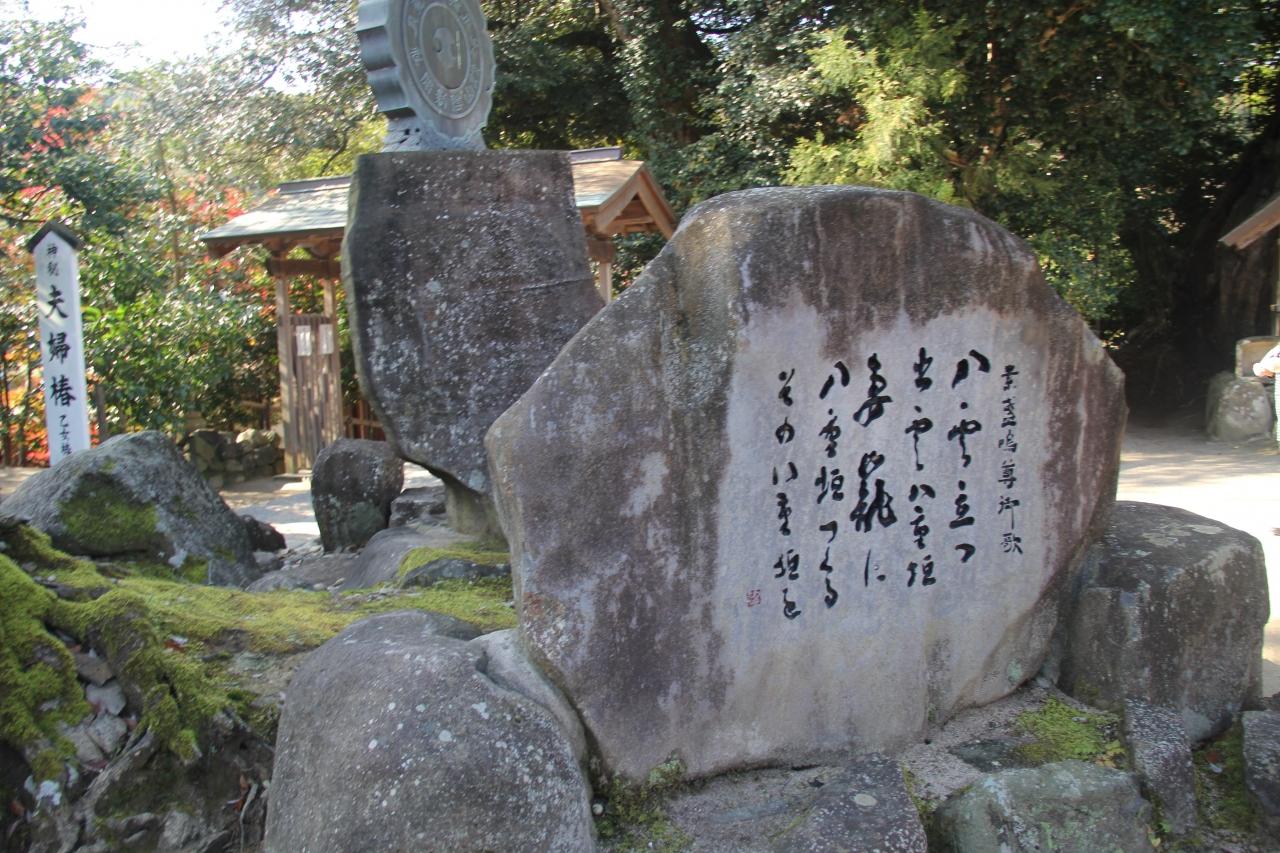 素盞嗚尊御歌
八雲立つ
出雲八重垣
妻籠に
八重垣つくる
その八重垣を
神制 夫婦椿
乙女椿